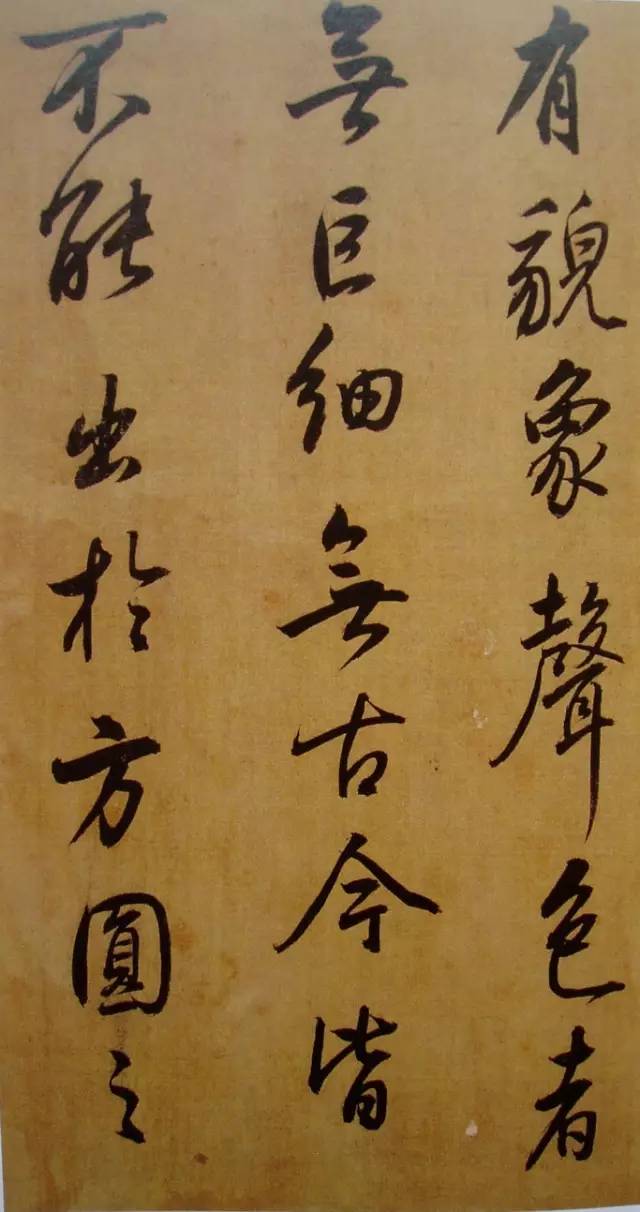 有貌象聲色者
無巨細無古今皆
不能出於方圓之